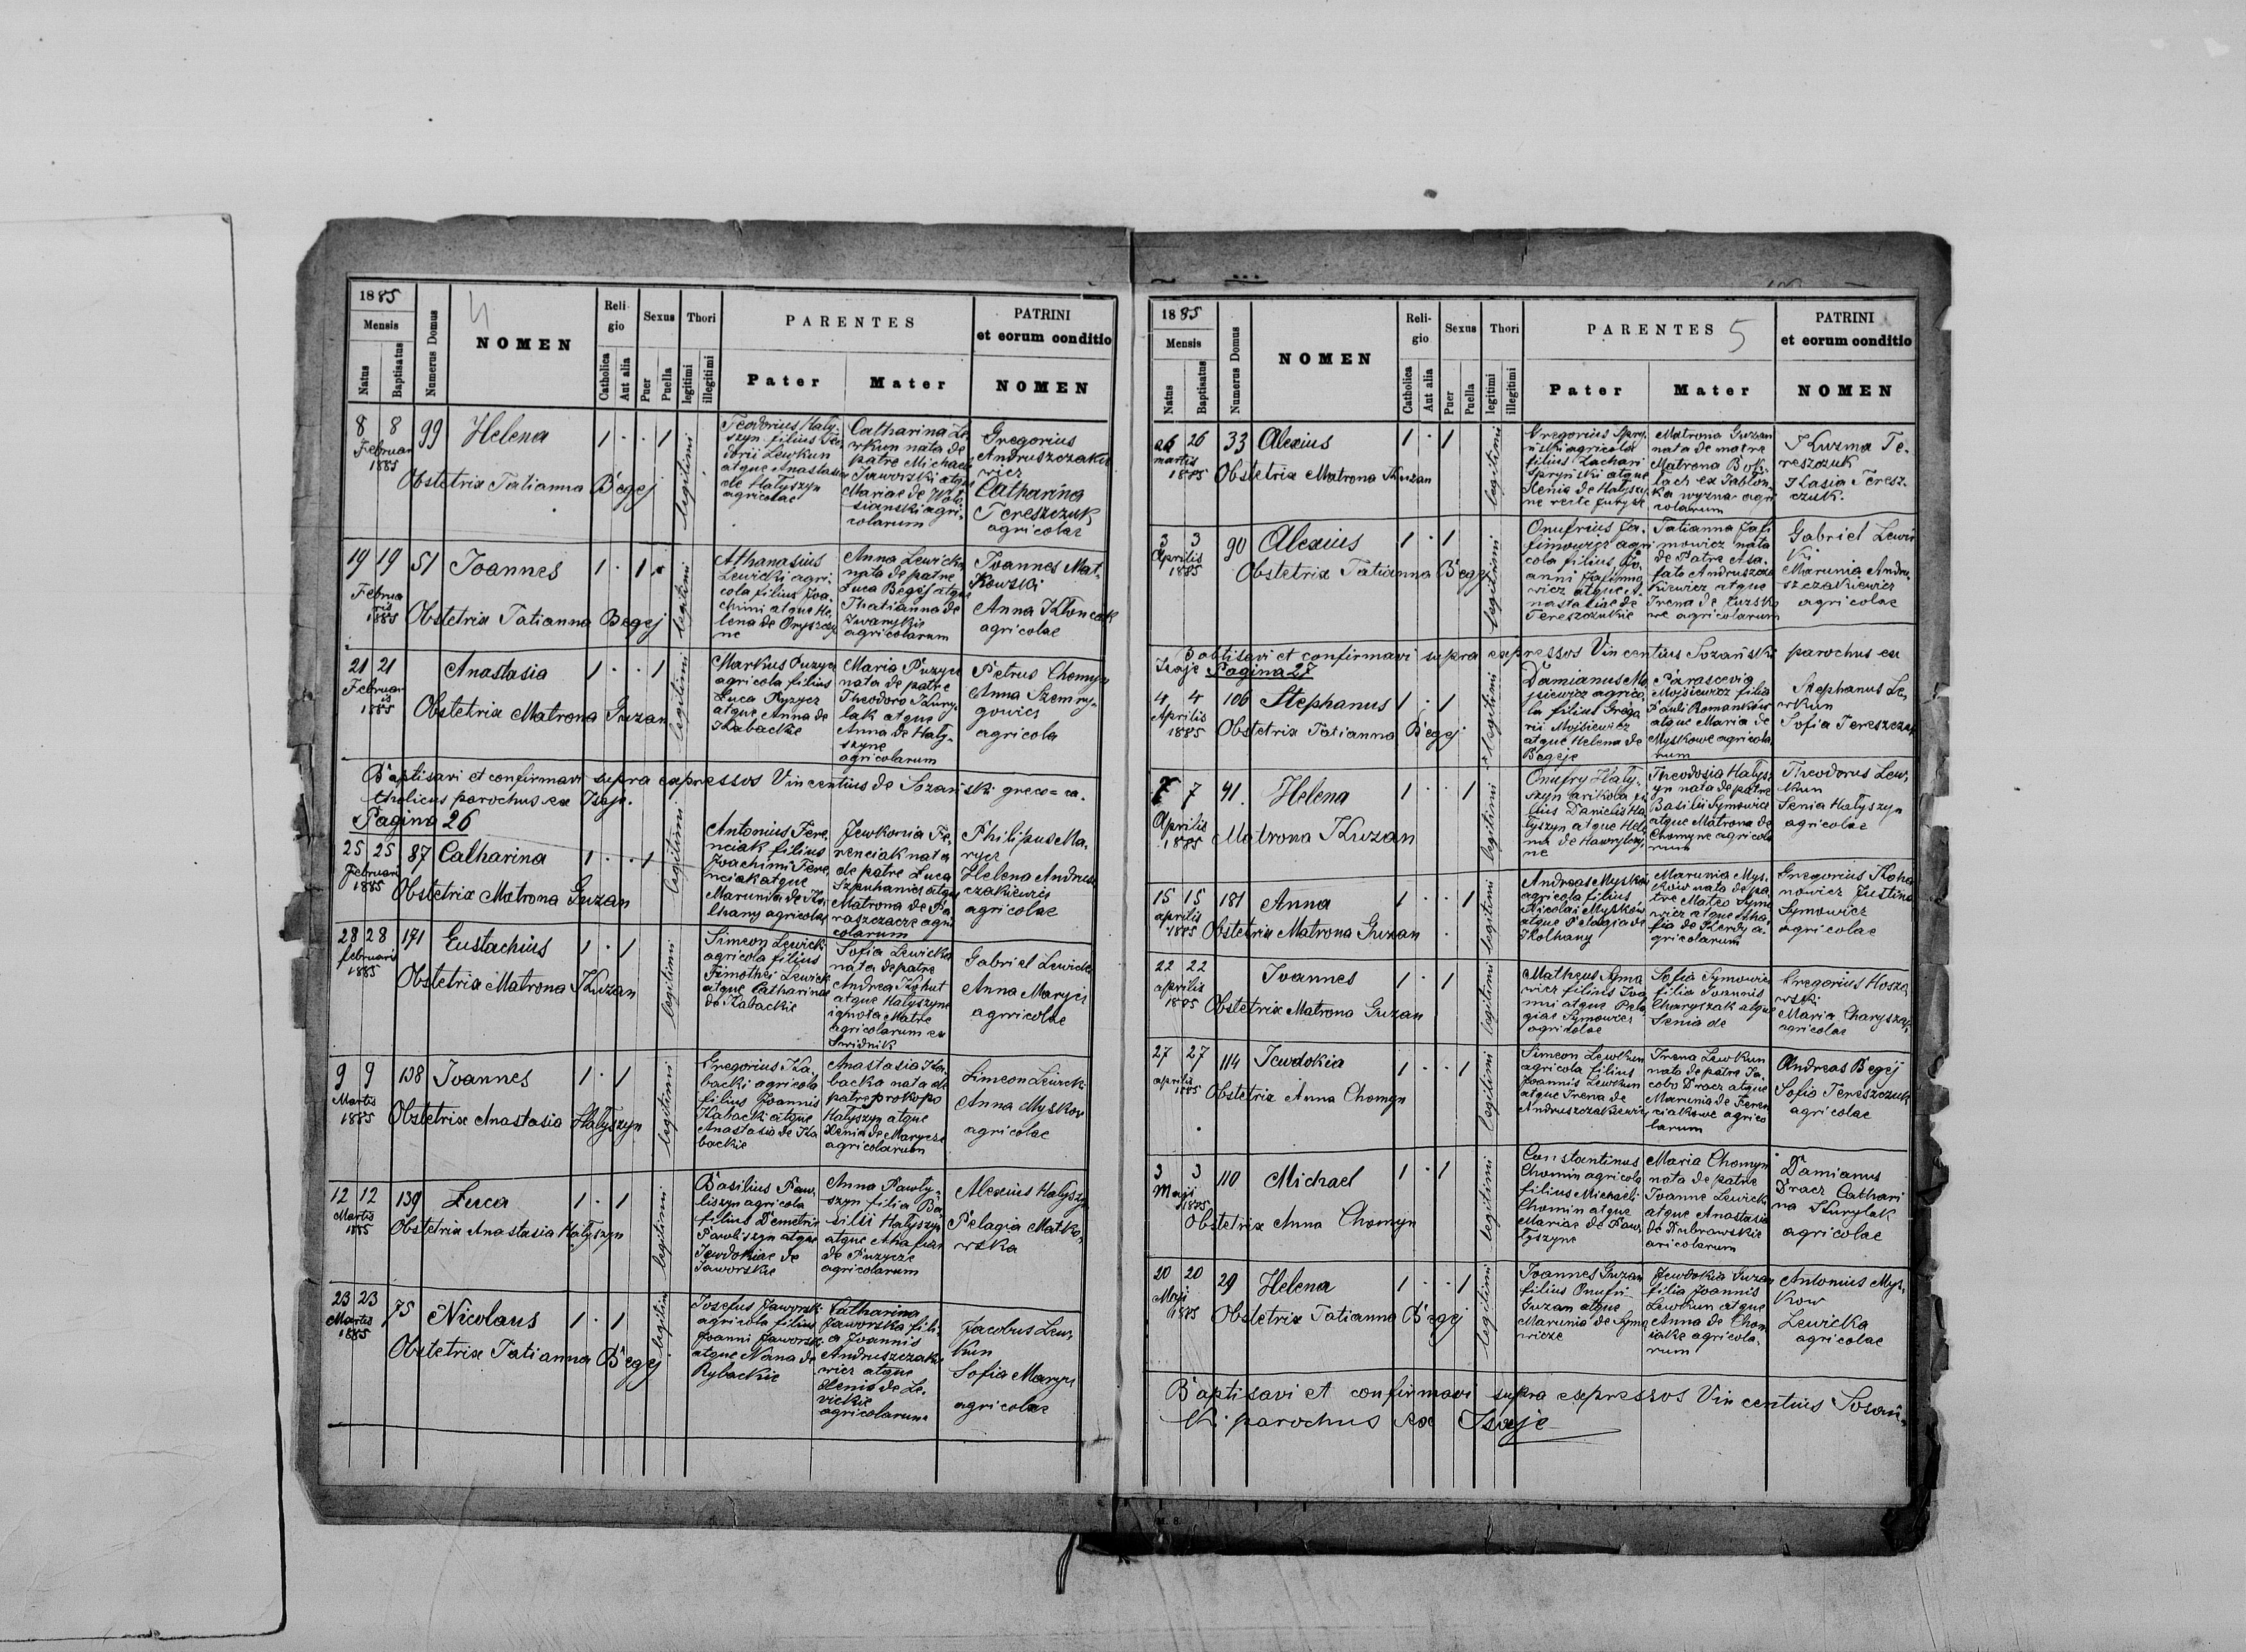 1885
Mensis
Natus
Baptisatus
Numerus Domus
4
NOMEN
Religio
Catholica
Aut alia
Sexus
Puer
Puella
Thori
legitimi
illegitimi
PARENTES
Pater
Mater
PATRINI
et eorum conditio
NOMEN
8 8 99 Helena 1 . . 1
Februar
1885
Obstetrix Tatianna Begej
legitimi
Teodorius Haty-
szyn filius
Lewkun
atque Anastasia
de Hatyszyn
agricolae
Catharina Le-
wkun nata de
patre Michaeli
Jaworski atque
Mariae de
agri-
colarum
Gregorius
Andruszczakie
wicz
Catharina
Tereszczuk
agricolae
19 19 51 Joannes 1 . 1 .
Februa
ris
1885
Obstetrix Tatianna Begej
legitimi
Athanasius
Lewicki agri-
cola filius Joa-
chimi atque He-
lena de Oryszczy
ne
Anna Lewicka
nata de patre
Luca Begej atque
Thatianna de
Iwanykie
agricolarum
Joannes Mat-
kowski
Anna Klonczak
agricolae
21 21 Anastasia 1 . . 1
Februar
is
1885
Obstetrix Matrona Guzan
legitimi
Markus Puzycz
agricola filius
Luca Pyzycz
atque Anna de
Kabackie
Maria Puzycz
nata de patre
Theodoro Kury-
lak atque
Anna de Haty-
szyne
agricolarum
Petrus Chomyn
Anna Szemry-
gowicz
agricola
Baptisavi et confirmavi supra expressos Vincentius de Sozański greco=ca-
tholicus parochus ex Isaje.
Pagina 26
25 25 87 Catharina 1 . . 1
Februari
1885
Obstetrix Matrona Guzan
legitimi
Antonius Tere-
nciak filius
Joachimi Tere
nciak atque
Marunia de Ko-
lhany agricolae
Jewkonia Te-
renciak nata
de patre Luca
Szpuhanicz atque
Matrona de Pa
raszczacze agri
colarum
Philipus Ma-
rycz
Helena Andrusz
czakiewicz
agricolae
28 28 171 Eustachius 1 . 1
februari
1885
Obstetrix Matrona Kuzan
legitimi
Simeon Lewicki
agricola filius
Timothei Lewick
atque Catharinae
de Kabackie
Sofia Lewicka
nata de patre
Andrea Kohut
atque Hatyszyne
ignota Matre
agricolarum ex
Swidnik
Gabriel Lewick
Anna Marycz
agricolae
9 9 138 Joannes 1 . 1
Martis
1885
Obstetrix Anastasia Hatyszyn
legitimi
Gregorius Ka-
backi agricola
filius Joannis
Kabacki atque
Anastasia de Ka
backie
Anastasia Ka-
backa nata de
patre prokopo
Hatyszyn atque
Xenia de Marycze
agricolarum
Simeon Lewick
Anna Myskow
agricolae
12 12 139 Luca 1 . 1
Martis
1885
Obstetrix Anastasia Hatyszyn
legitimi
Basilius Paw-
liszyn agricola
filius Demetrii
Pawliszyn atque
Jewdokiae de
Jaworskie
Anna Pawly-
szyn filia Ba-
silii Hatyszyn
atque Ahafiae
de Puzycze
agricolarum
Alexius Hatyszyn
Pelagia Matko-
wska
23 23 75 Nicolaus 1 . 1
Martis
1885
Obstetrix Tatianna Begej
legitimi
Josefus Jaworski
agricola filius
Joanni Jaworski
atque Nana de
Rybackie
Catharina
Jaworska fili-
a Joannis
Andruszczakie
wicz atque
Xenia de Le-
vickie
agricolarum
Jacobus Lew-
kun
Sofia Marycz
agricolae
1885
Mensis
Natus
Baptisatus
Numerus Domus
NOMEN
Religio
Catholica
Aut alia
Sexus
Puer
Puella
Thori
legitimi
illegitimi
PARENTES 5
Pater
Mater
PATRINI
et eorum conditio
NOMEN
26 26 33 Alexius 1 . 1
martis
1885
Obstetrix Matrona Kuzan
legitimi
Gregorius Spry-
ński agricola
filius Zachari
Spryński atque
Xenia de Hatyszy-
ne
Matrona Guzan
nata de matre
Matrona
ex Jablon-
ka wyzna agri
colarum
Kuzma Te-
reszczuk
Kasia Teresz-
czuk.
3 3 90 Alexius 1 . 1
Aprilis
1885
Obstetrix Tatianna Begej
legitimi
Onufrius Ja-
fimowicz agri
cola filius Jo-
anni Jafimo
wicz atque A-
nastasiae de
Tereszczukie
Tatianna Jafi
mowicz nata
de Patre Asa-
fato Andruszcza
kiewicz atque
Irena de
we agricolarum
Gabriel Lewic
ki
Marunia Andru-
szczakiewicz
agricolae
Babtisavi et confirmavi supra expressos Vincentius Sozański parochus ex
Isaje Pagina 27
4 4 106 Stephanus 1 . 1
Aprilis
1885
Obstetrix Tatianna Begej
legitimi
Damianus Mo-
jsiewicz agrico-
la filius Grego
rii Mojsiewicz
atque Helena de
Begeje
Parascevia
Mojsiewicz filia
Pauli Romanków
atque Maria de
Myskowe agricola-
rum
Stephanus Le-
wkun
Sofia Tereszczuk
7 7 41. Helena 1 . . 1
Aprilis
1885
Matrona Kuzan
legitimi
Onufry Haty-
szyn arikola fi
lius Danielis Ha
tyszyn atque Hele
na de Hawrylczy-
ne
Theodosia Hatysz
yn nata de patre
Basilii Symowicz
atque Matrona de
Chomyne agricola
rum
Theodorus Lew-
kun
Senia Hatyszyn
agricolae
15 15 181 Anna 1 . . 1
aprilis
1885
Obstetrix Matrona Guzan
legitimi
Andreas Myskow
agricola filius
Nicolai Myskow
atque Pelagia de
Kolhany
Marunia Mys-
ków nata de pa-
tre Mateo Symo
wicz atque Aha-
fia de Kerdy a-
gricolarum
Gregorius Koha
nowicz Justina
Symowicz
agricolae
22 22 Joannes 1 . 1
aprilis
1885
Obstetrix Matrona Guzan
legitimi
Matheus Symo
wicz filius Joa
nni atque Pela
giae Symowicz
agricolae
Sofia Symowicz
filia Joannis
Charyszak atque
Senia de
Gregorius Hosza
wski
Maria Charyszak
agricolae
27 27 114 Jewdokia 1 . . 1
aprilis
1885
Obstetrix Anna Chomyn
legitimi
Simeon Lewkun
agricola filius
Joannis Lewkun
atque Irena de
Andruszczakiewicz
Irena Lewkun
nata de patre Ja-
cobo Dracz atque
Marunia de Teren
ciakowe agrico
larum
Andreas Begej
Sofia Tereszczuk
agricolae
3 3 110 Michael 1 . 1
Maji
1885
Obstetrix Anna Chomyn
legitimi
Constantinus
Chomin agricola
filius Michaeli
Chomin atque
Mariae de Paw-
lyszyne
Maria Chomyn
nata de patre
Joanne Lewicki
atque Anastasia
de Dubrawskie
aricolarum
Damianus
Dracz Cathari
na Kurylak
agricolae
20 20 29 Helena 1 . . 1
Maji
1885
Obstetrix Tatianna Begej
legitimi
Joannes Guzan
filius Onufri
Guzan atque
Marunia de Symo
wicze
Jewdokia Guzan
filia Joannis
Lewkun atque
Anna de Chom
iake agricola-
rum
Antonius Mys-
kow
Lewicka
agricolae
Baptisavi et confirmavi supra expressos Vincentius Sosań-
ski parochus ex Isaje